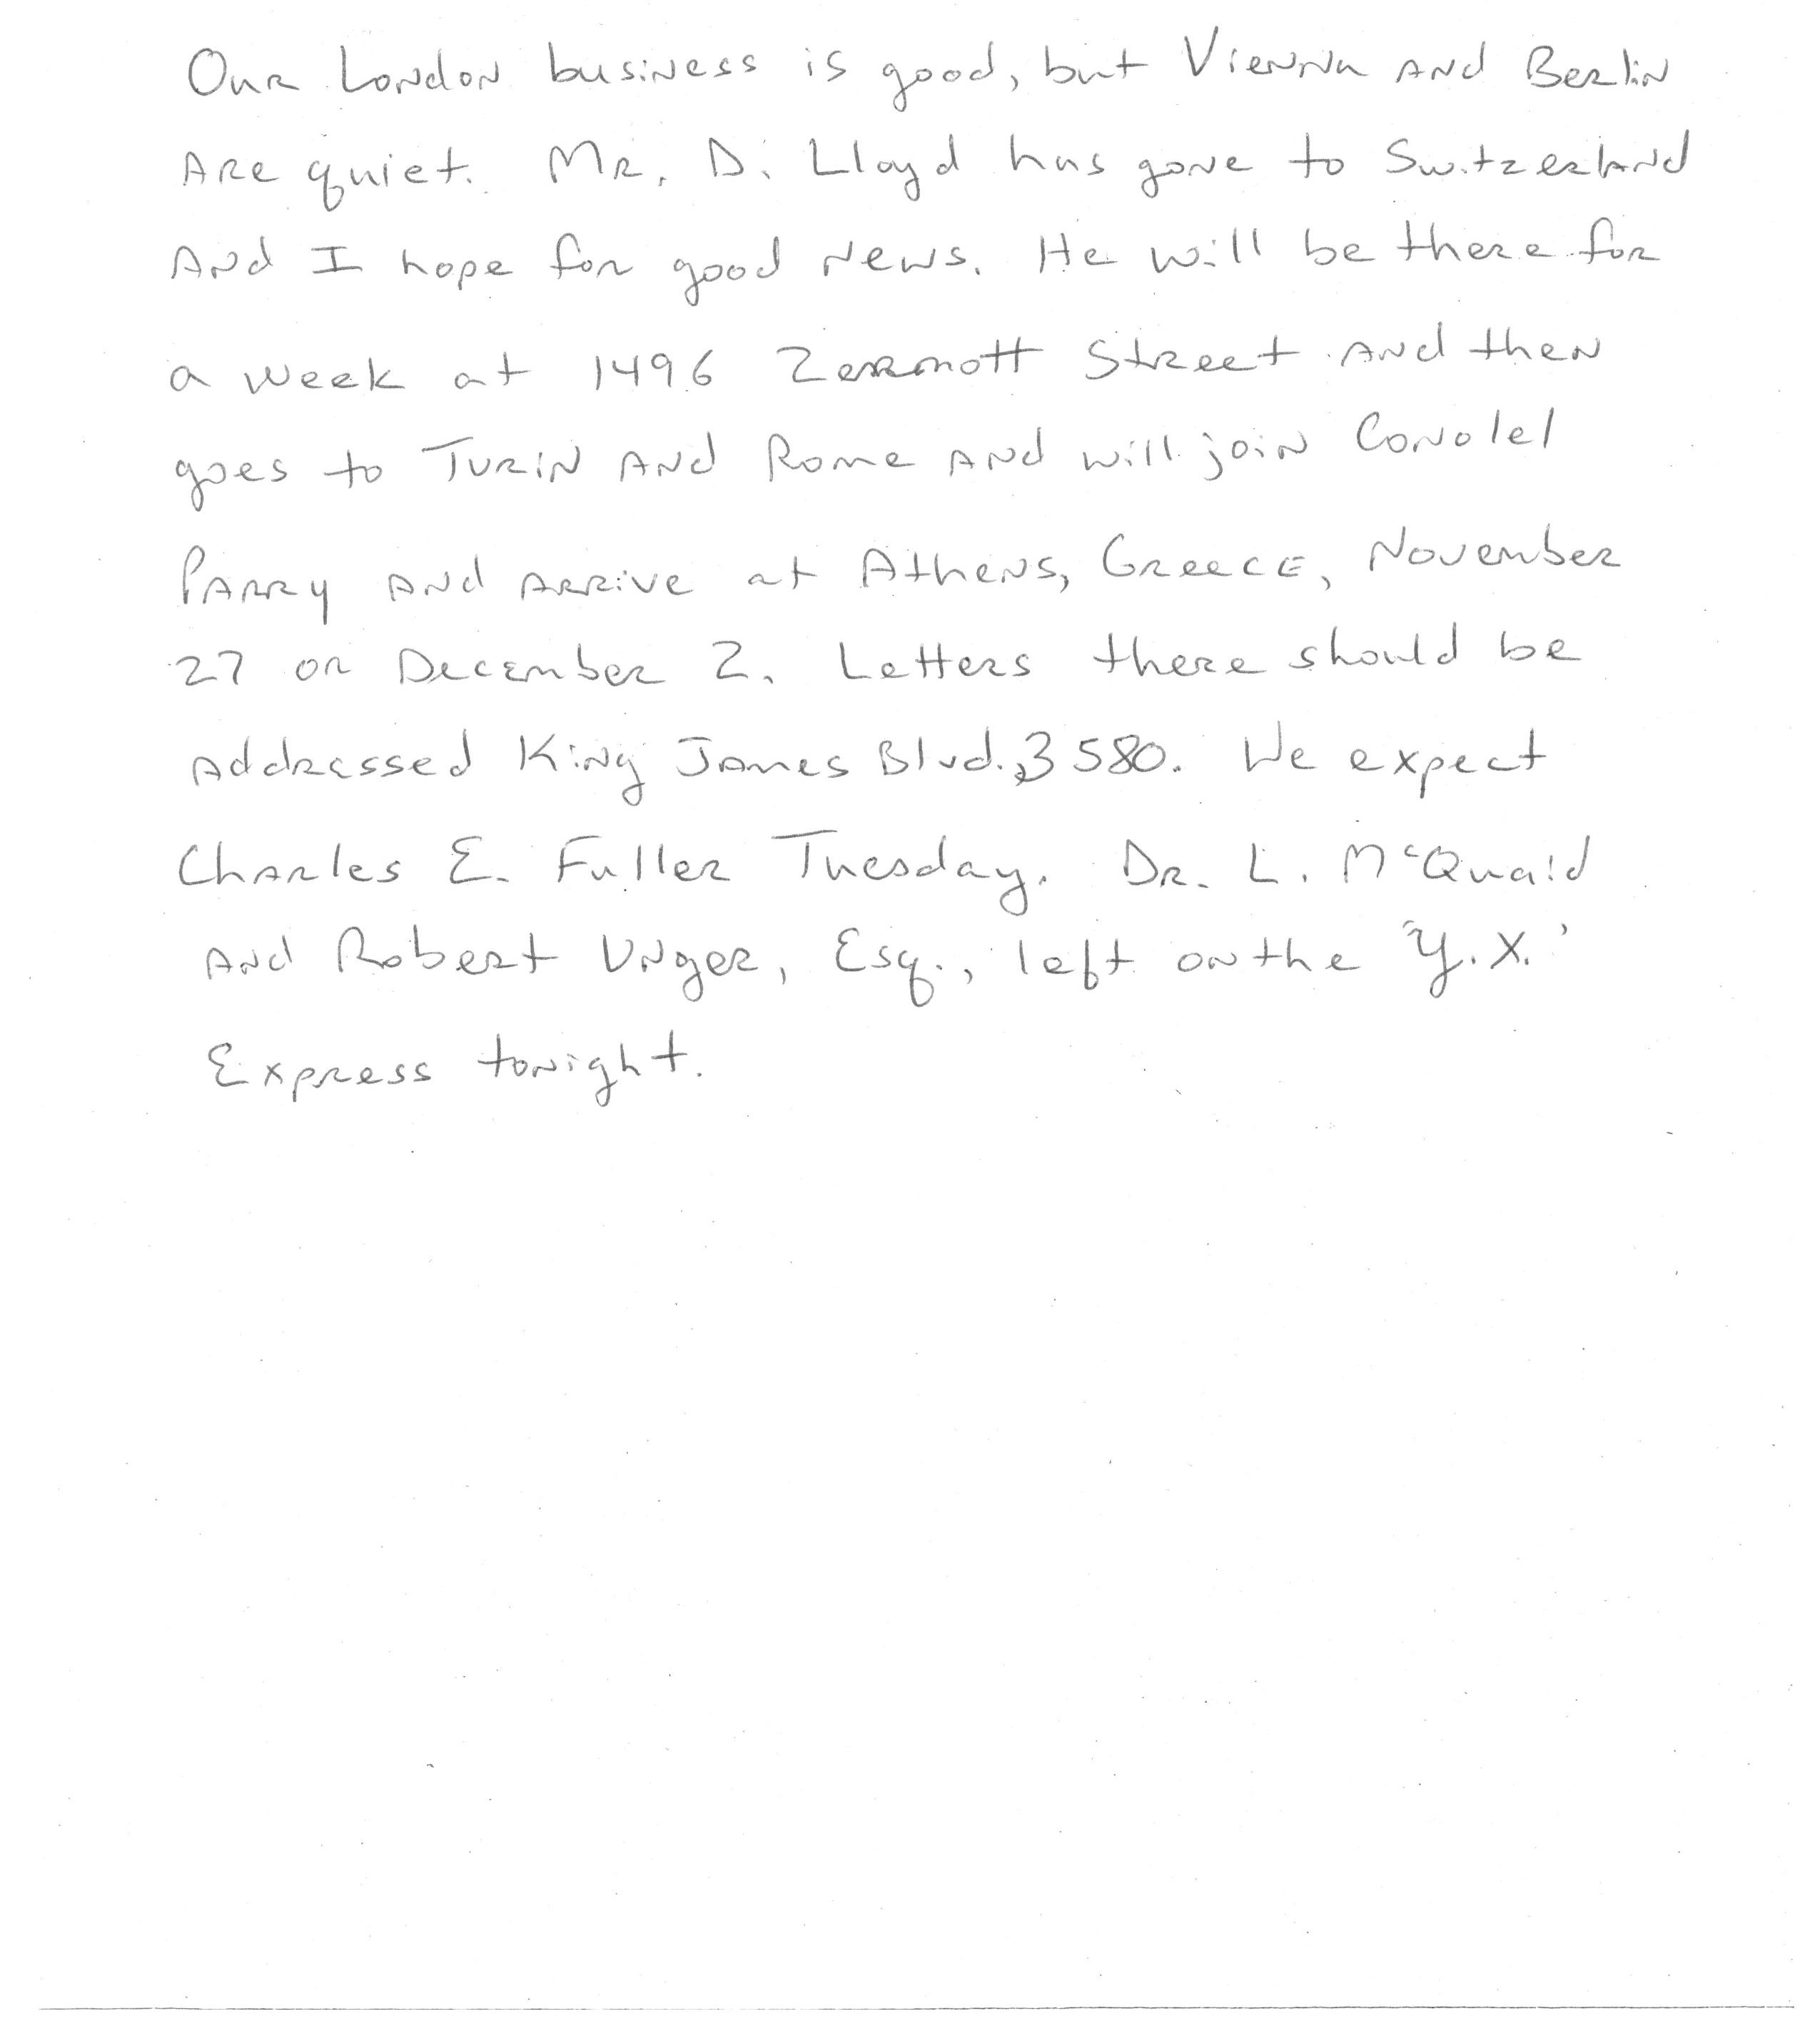 Our London business is good, but Vienna and Berlin
are quiet. Mr. D. Lloyd has gone to Switzerland
and I hope for good news. He will be there for
a week at 1496 Zermott Street and then
goes to Turin and Rome and will join Conolel
Parry and arrive at Athens, Greece, November
27 or December 2. Letters there should be
addressed King James Blvd. 3580. We expect
Charles E. Fuller Tuesday. Dr. L. McQuaid
and Robert Unger, Esq., left on the 'Y.X.'
Express tonight.